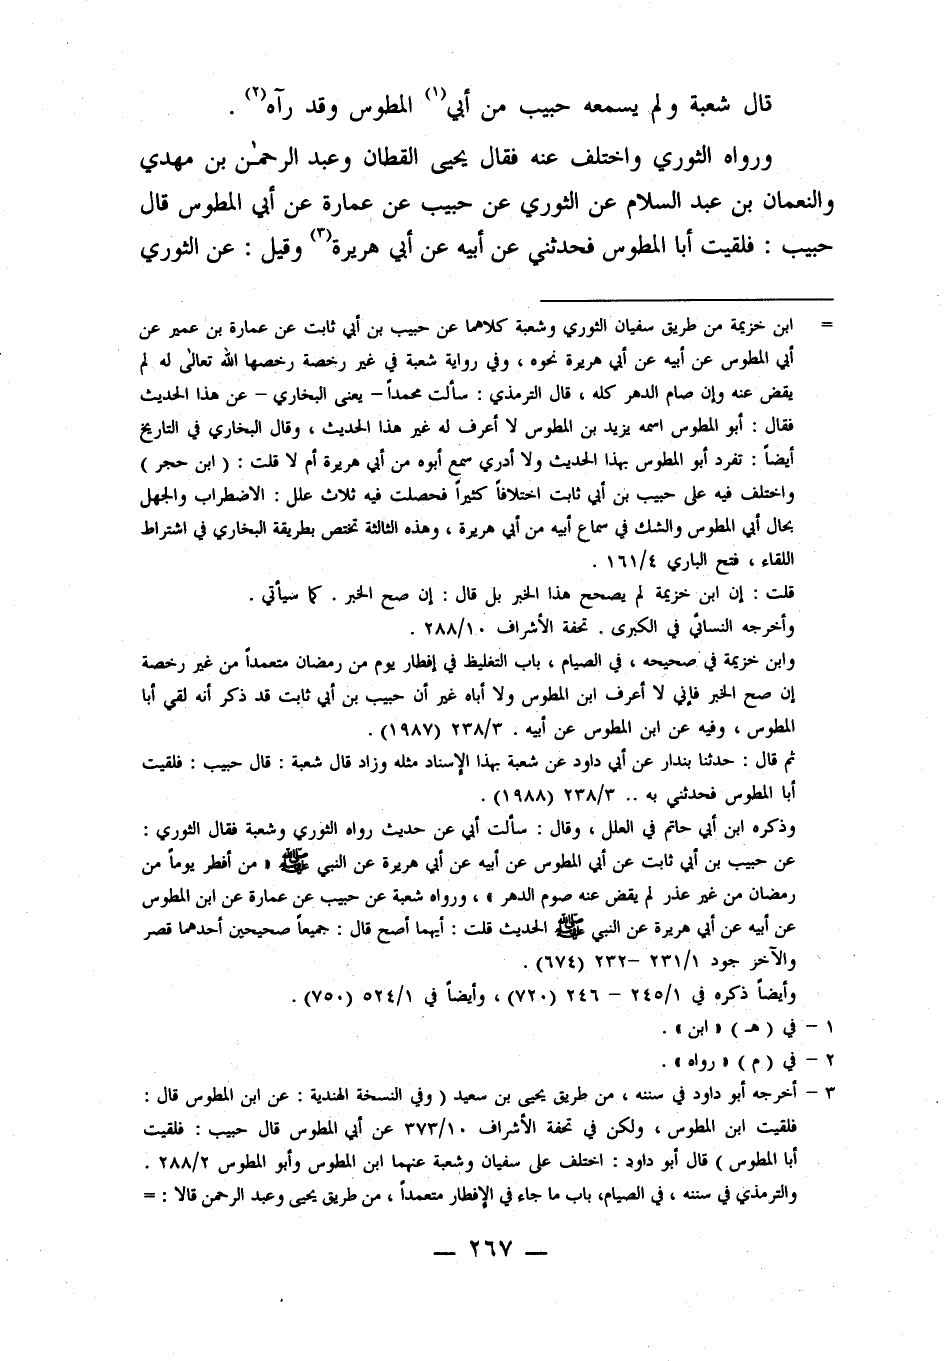 قال شعبة ولم يسمعه حبيب من أبي(١) المطوس وقد رآه(٢) .
ورواه الثوري واختلف عنه فقال يحيى القطان وعبد الرحمٰن بن مهدي
والنعمان بن عبد السلام عن الثوري عن حبيب عن عمارة عن أبي المطوس قال
حبيب : فلقيت أبا المطوس فحدثني عن أبيه عن أبي هريرة(٣) وقيل : عن الثوري
= ابن خزيمة من طريق سفيان الثوري وشعبة كلاهما عن حبيب بن أبي ثابت عن عمارة بن عمير عن
أبي المطوس عن أبيه عن أبي هريرة نحوه ، وفي رواية شعبة في غير رخصة رخصها الله تعالى له لم
يقض عنه وإن صام الدهر كله ، قال الترمذي : سألت محمداً – يعنى البخاري – عن هذا الحديث
فقال : أبو المطوس اسمه يزيد بن المطوس لا أعرف له غير هذا الحديث ، وقال البخاري في التاريخ
أيضاً : تفرد أبو المطوس بهذا الحديث ولا أدري سمع أبوه من أبي هريرة أم لا قلت : ( ابن حجر )
واختلف فيه على حبيب بن أبي ثابت اختلافاً كثيراً فحصلت فيه ثلاث علل : الاضطراب والجهل
بحال أبي المطوس والشك في سماع أبيه من أبي هريرة ، وهذه الثالثة تختص بطريقة البخاري في اشتراط
اللقاء ، فتح الباري ١٦١/٤ .
قلت : إن ابن خزيمة لم يصحح هذا الخبر بل قال : إن صح الخبر . كما سيأتي .
وأخرجه النسائي في الكبرى . تحفة الأشراف ٢٨٨/١٠ .
وابن خزيمة في صحيحه ، في الصيام ، باب التغليظ في إفطار يوم من رمضان متعمداً من غير رخصة
إن صح الخبر فإني لا أعرف ابن المطوس ولا أباه غير أن حبيب بن أبي ثابت قد ذكر أنه لقي أبا
المطوس ، وفيه عن ابن المطوس عن أبيه . ٢٣٨/٣ (١٩٨٧) .
ثم قال : حدثنا بندار عن أبي داود عن شعبة بهذا الإسناد مثله وزاد قال شعبة : قال حبيب : فلقيت
أبا المطوس فحدثني به .. ٢٣٨/٣ (١٩٨٨) .
وذكره ابن أبي حاتم في العلل ، وقال : سألت أبي عن حديث رواه الثوري وشعبة فقال الثوري :
عن حبيب بن أبي ثابت عن أبي المطوس عن أبيه عن أبي هريرة عن النبي ﷺ « من أفطر يوماً من
رمضان من غير عذر لم يقض عنه صوم الدهر » ، ورواه شعبة عن حبيب عن عمارة عن ابن المطوس
عن أبيه عن أبي هريرة عن النبي ﷺ الحديث قلت : أيهما أصح قال : جميعاً صحيحين أحدهما قصر
والآخر جود ٢٣١/١ –٢٣٢ (٦٧٤) .
وأيضاً ذكره في ٢٤٥/١ – ٢٤٦ (٧٢٠) ، وأيضاً في ٥٢٤/١ (٧٥٠) .
١ – في ( هـ ) « ابن » .
٢ – في ( م ) « رواه » .
٣ – أخرجه أبو داود في سننه ، من طريق يحيى بن سعيد ( وفي النسخة الهندية : عن ابن المطوس قال :
فلقيت ابن المطوس ، ولكن في تحفة الأشراف ٣٧٣/١٠ عن أبي المطوس قال حبيب : فلقيت
أبا المطوس ) قال أبو داود : اختلف على سفيان وشعبة عنهما ابن المطوس وأبو المطوس ٢٨٨/٢ .
والترمذي في سننه ، في الصيام، باب ما جاء في الإفطار متعمداً ، من طريق يحيى وعبد الرحمن قالا : =
— ٢٦٧ —